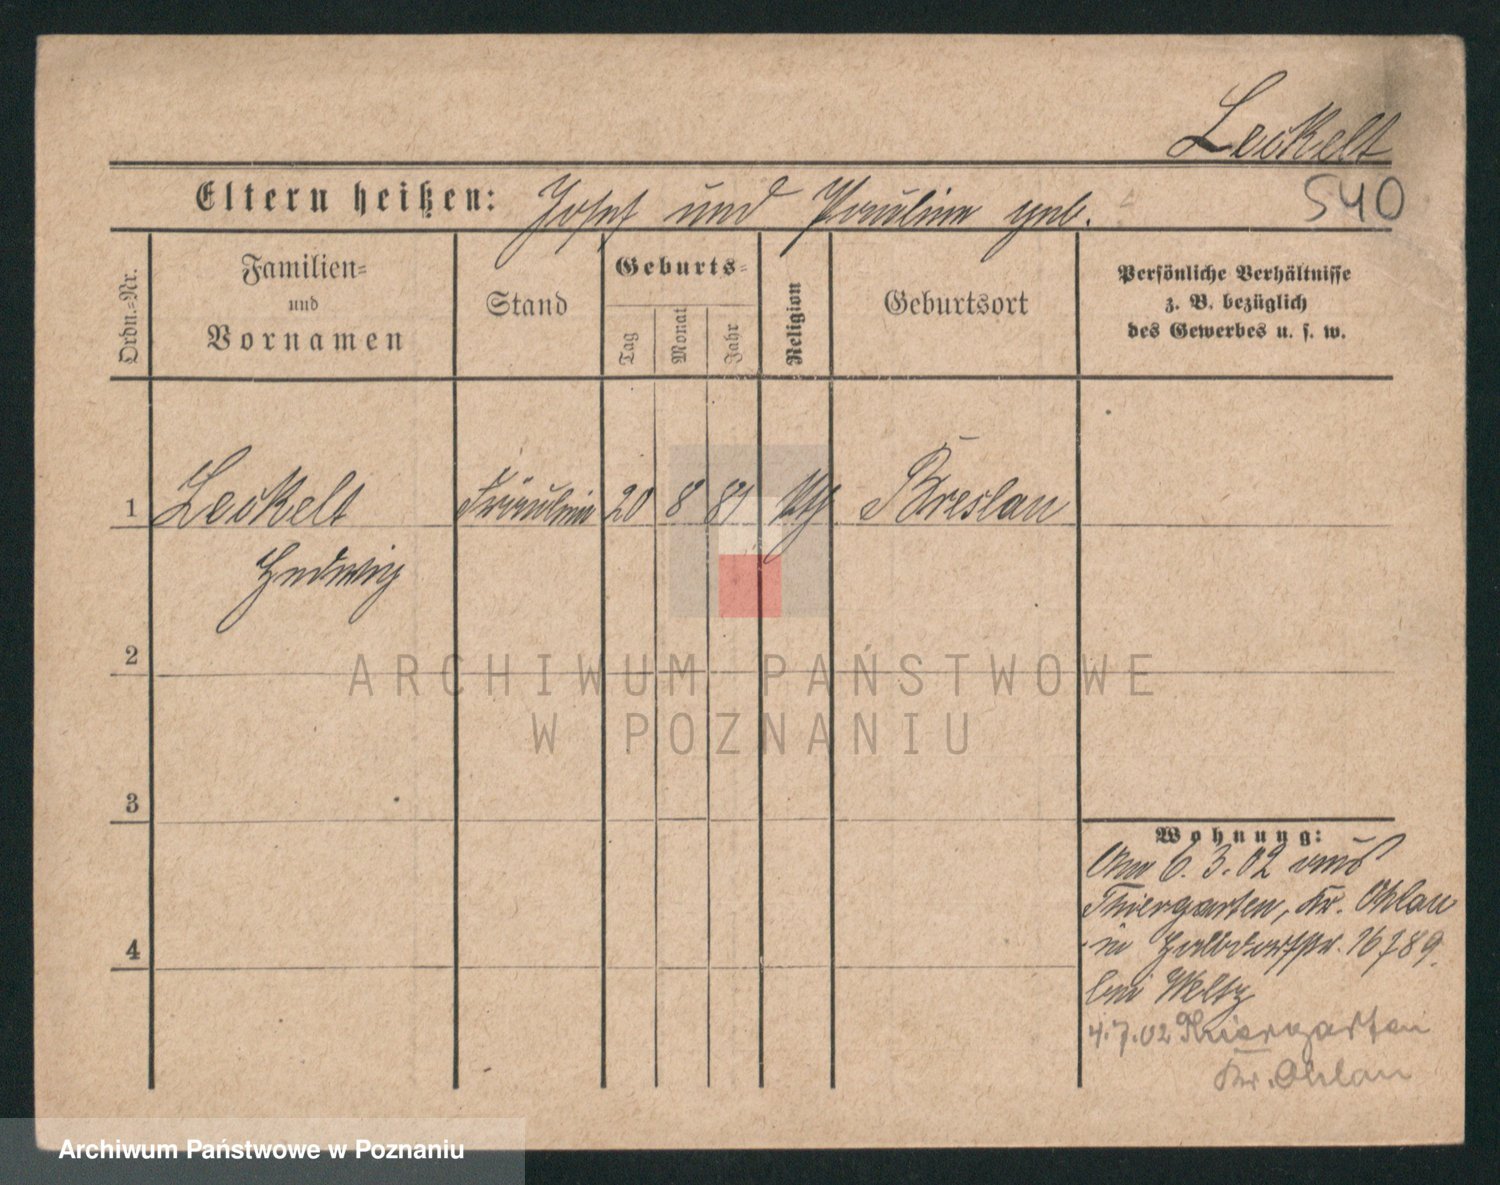 Leckelt
Eltern heißen: Josef und Pauline geb.
540
Ordn.-Nr.
Familien-
und
Vornamen
Stand
Geburts-
Tag
Monat
Jahr
Religion
Geburtsort
Persönliche Verhältnisse
z. B. bezüglich
des Gewerbes u. s. w.
1 Leckelt Fräulein 20 8 81 Breslau
Hedwig
2
3
4
Wohnung:
Am 6.3.02 aus
Thiergarten, Kr. Ohlau
in Halbdorfstr. 16
bei Weltz
4.7.02 Thiergarten
Kr. Ohlau
ARCHIWUM PAŃSTWOWE
W POZNANIU
Archiwum Państwowe w Poznaniu